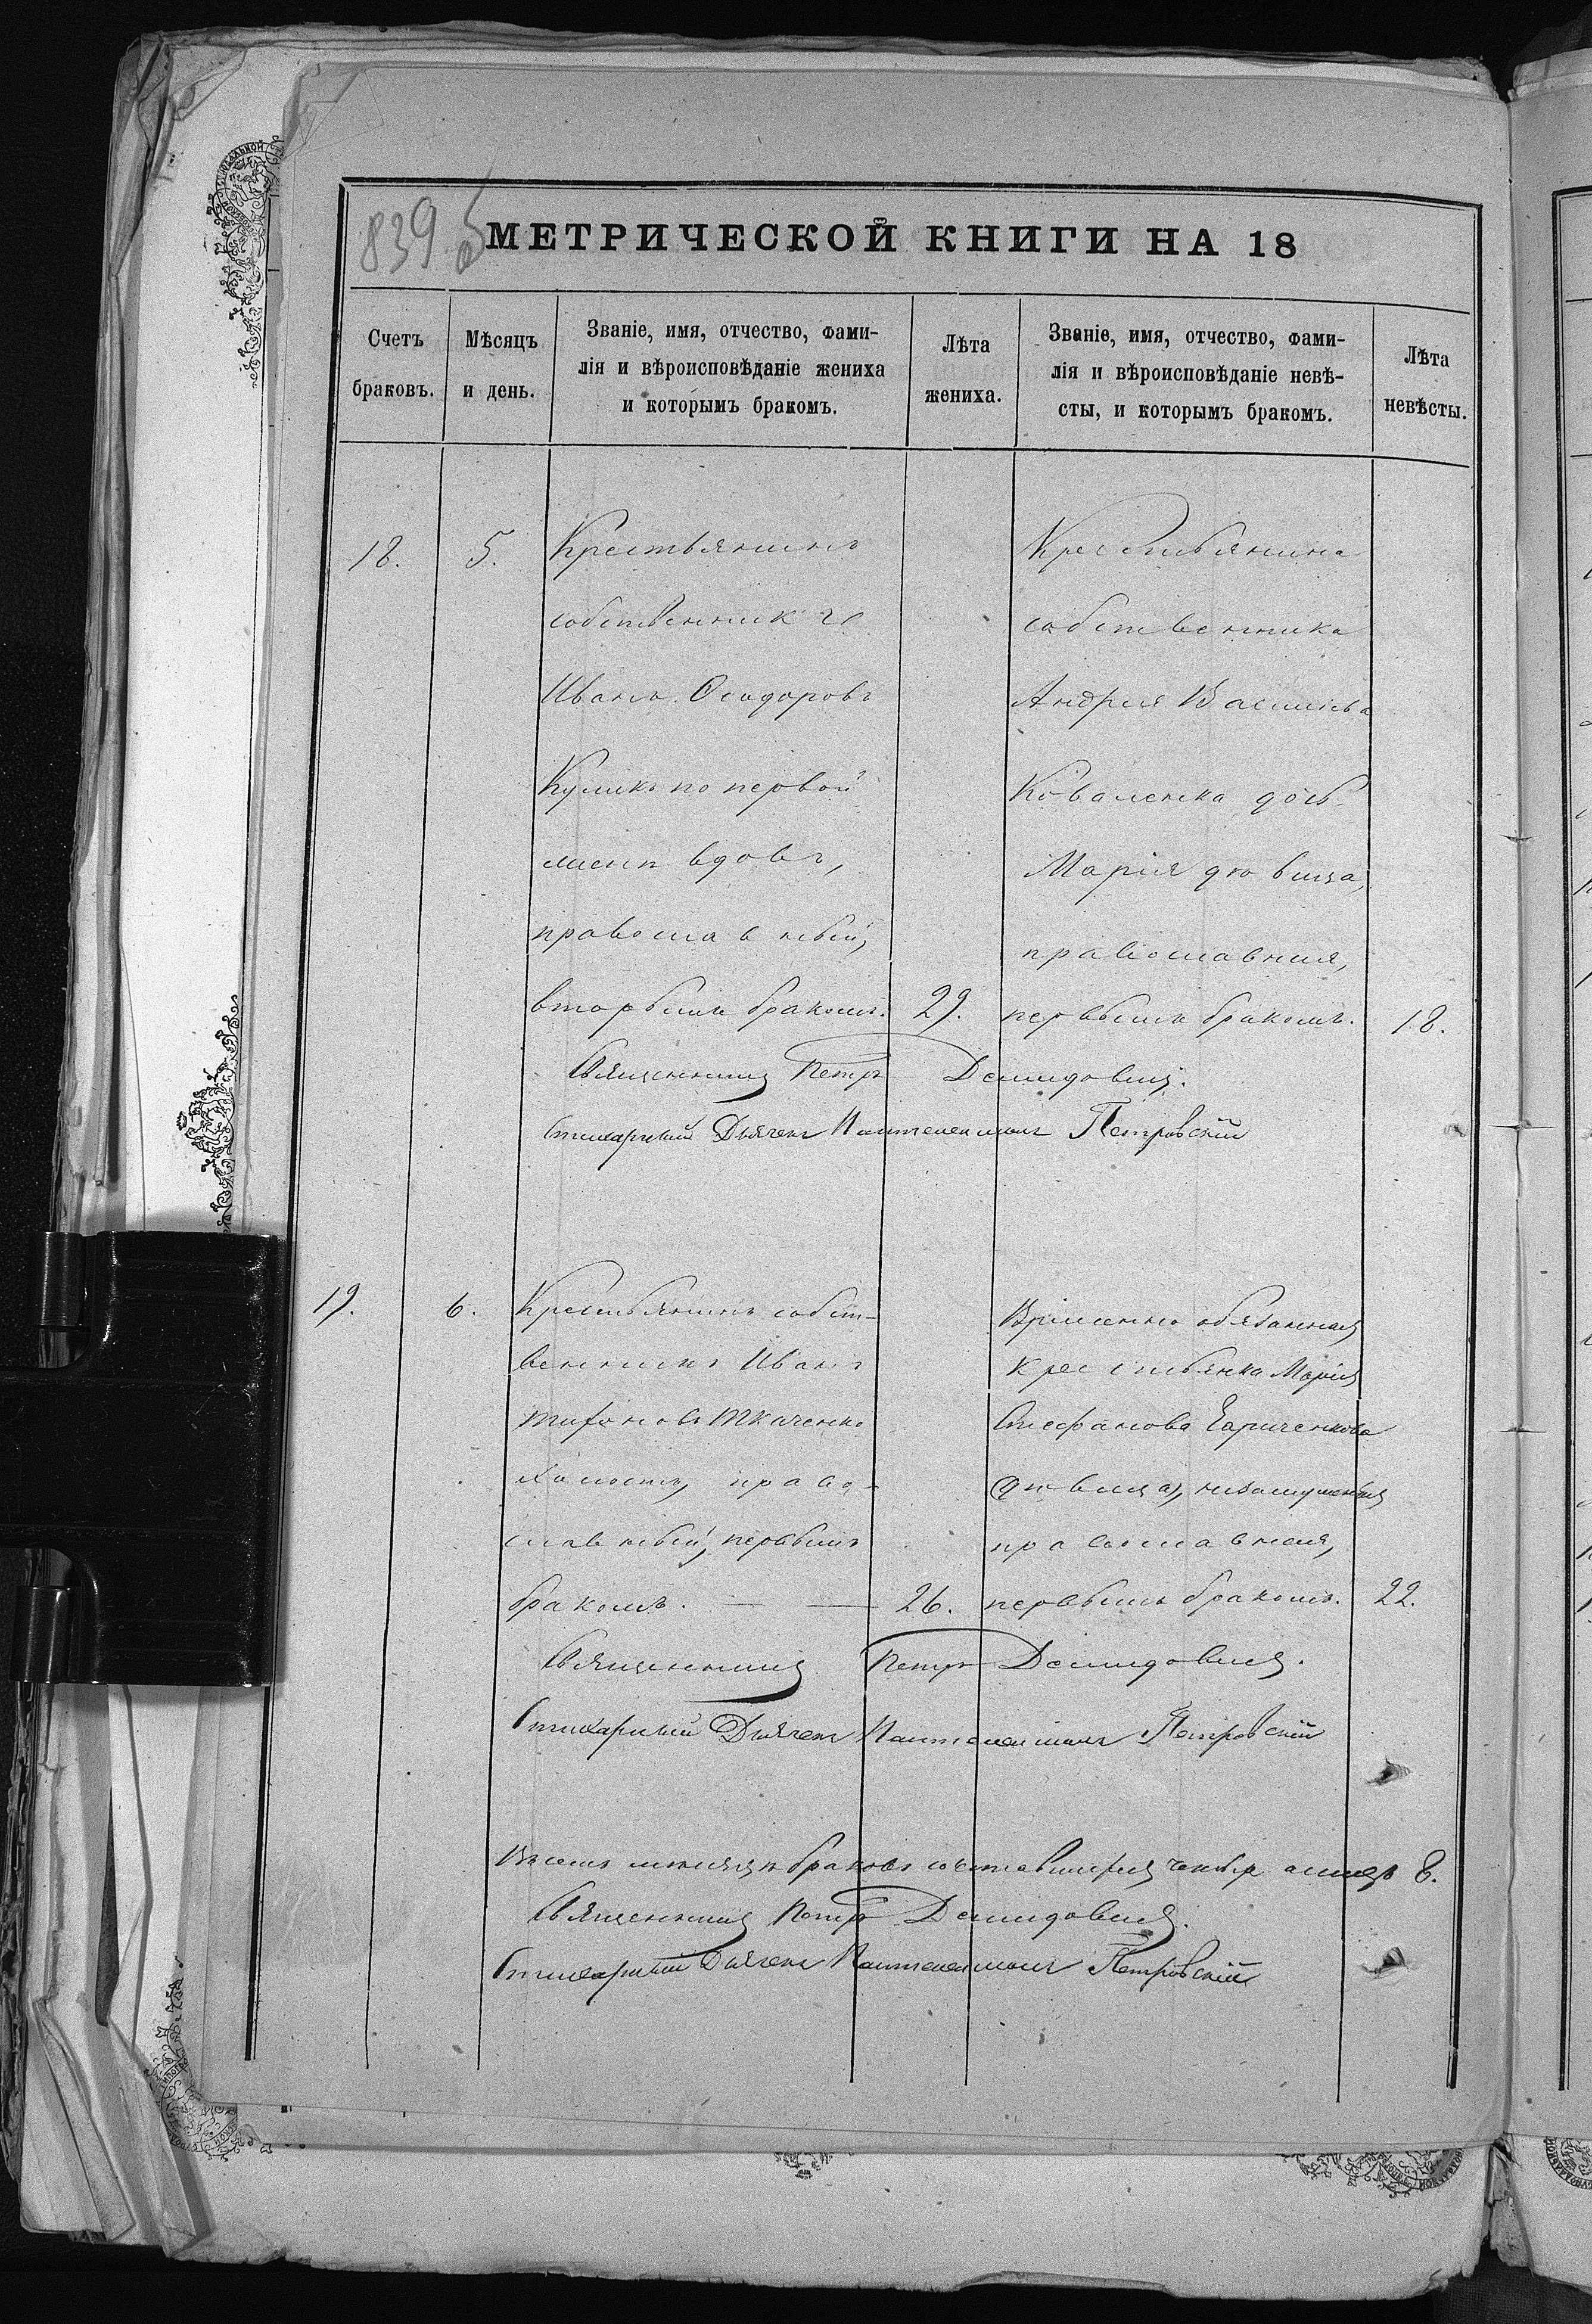 839 об
МЕТРИЧЕСКОЙ КНИГИ НА 18
Счетъ браковъ.
Мѣсяцъ и день.
Званіе, имя, отчество, фами-
лія и вѣроисповѣданіе жениха
и которымъ бракомъ.
Лѣта жениха.
Званіе, имя, отчество, фами-
лія и вѣроисповѣданіе невѣ-
сты, и которымъ бракомъ.
Лѣта невѣсты.
18.
5.
Крестьянинъ
собственникъ
Иванъ Осидоровъ
Куликъ по первой
женѣ вдовъ,
православный,
вторымъ бракомъ.
29.
Крестьянина
собственника
Андрея
Коваленка дочь
Марія дѣвица,
православная,
первымъ бракомъ.
18.
Священникъ Петръ Демидовичъ.
Стихарный Дьячекъ Пантелеимонъ Петровскій
19.
6.
Крестьянинъ собст-
венникъ Иванъ
Тифоновъ Ткаченко
холостъ, право-
славный, первымъ
бракомъ. — —
26.
Временно обязанная
крестьянка Марія
Стефанова
дѣвица,
православная,
первымъ бракомъ.
22.
Священникъ Петръ Демидовичъ.
Стихарный Дьячекъ Пантелеимонъ Петровскій
Въ семъ мѣсяцѣ браковъ 8.
Священникъ Петръ Демидовичъ.
Стихарный Дьячекъ Пантелеимонъ Петровскій